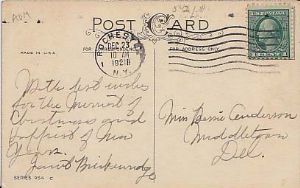 POST CARD
ROCHESTER
DEC 23
10 AM
192
N.Y.
MADE IN U.S.A.
FOR ADDRESS ONLY
With best wishes
for the merriest of
Christmas and
happiest of New
Years.
Miss Bessie Anderson
Middletown
Del.
SERIES 95A E